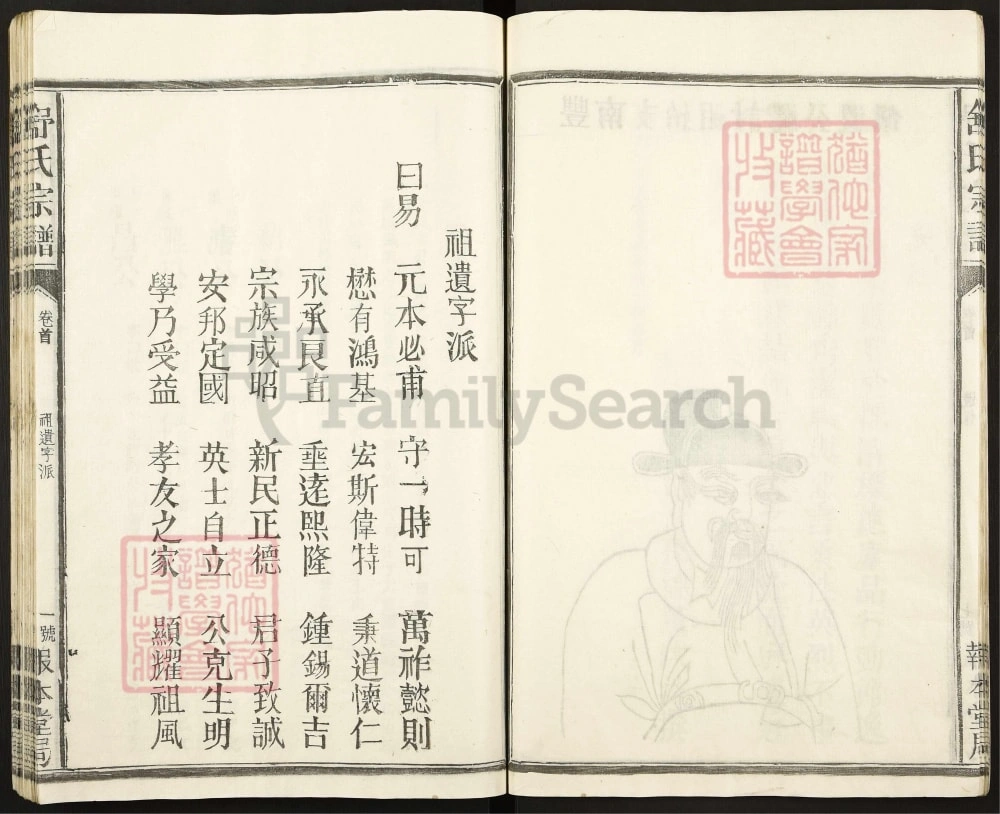 舒氏宗譜
報本堂局
祖遺字派
曰易 元本必甫 守一時可 萬祚懿則
懋有鴻基 宏斯偉特 秉道懷仁
永承艮直 垂逵熙隆 鍾錫爾吉
宗族咸昭 新民正德 君子致誠
安邦定國 英士自立 公克生明
學乃受益 孝友之家 顯耀祖風
舒氏宗譜
卷首
祖遺字派
一號
報本堂局
猶他家譜學會收藏
猶他家譜學會收藏
FamilySearch